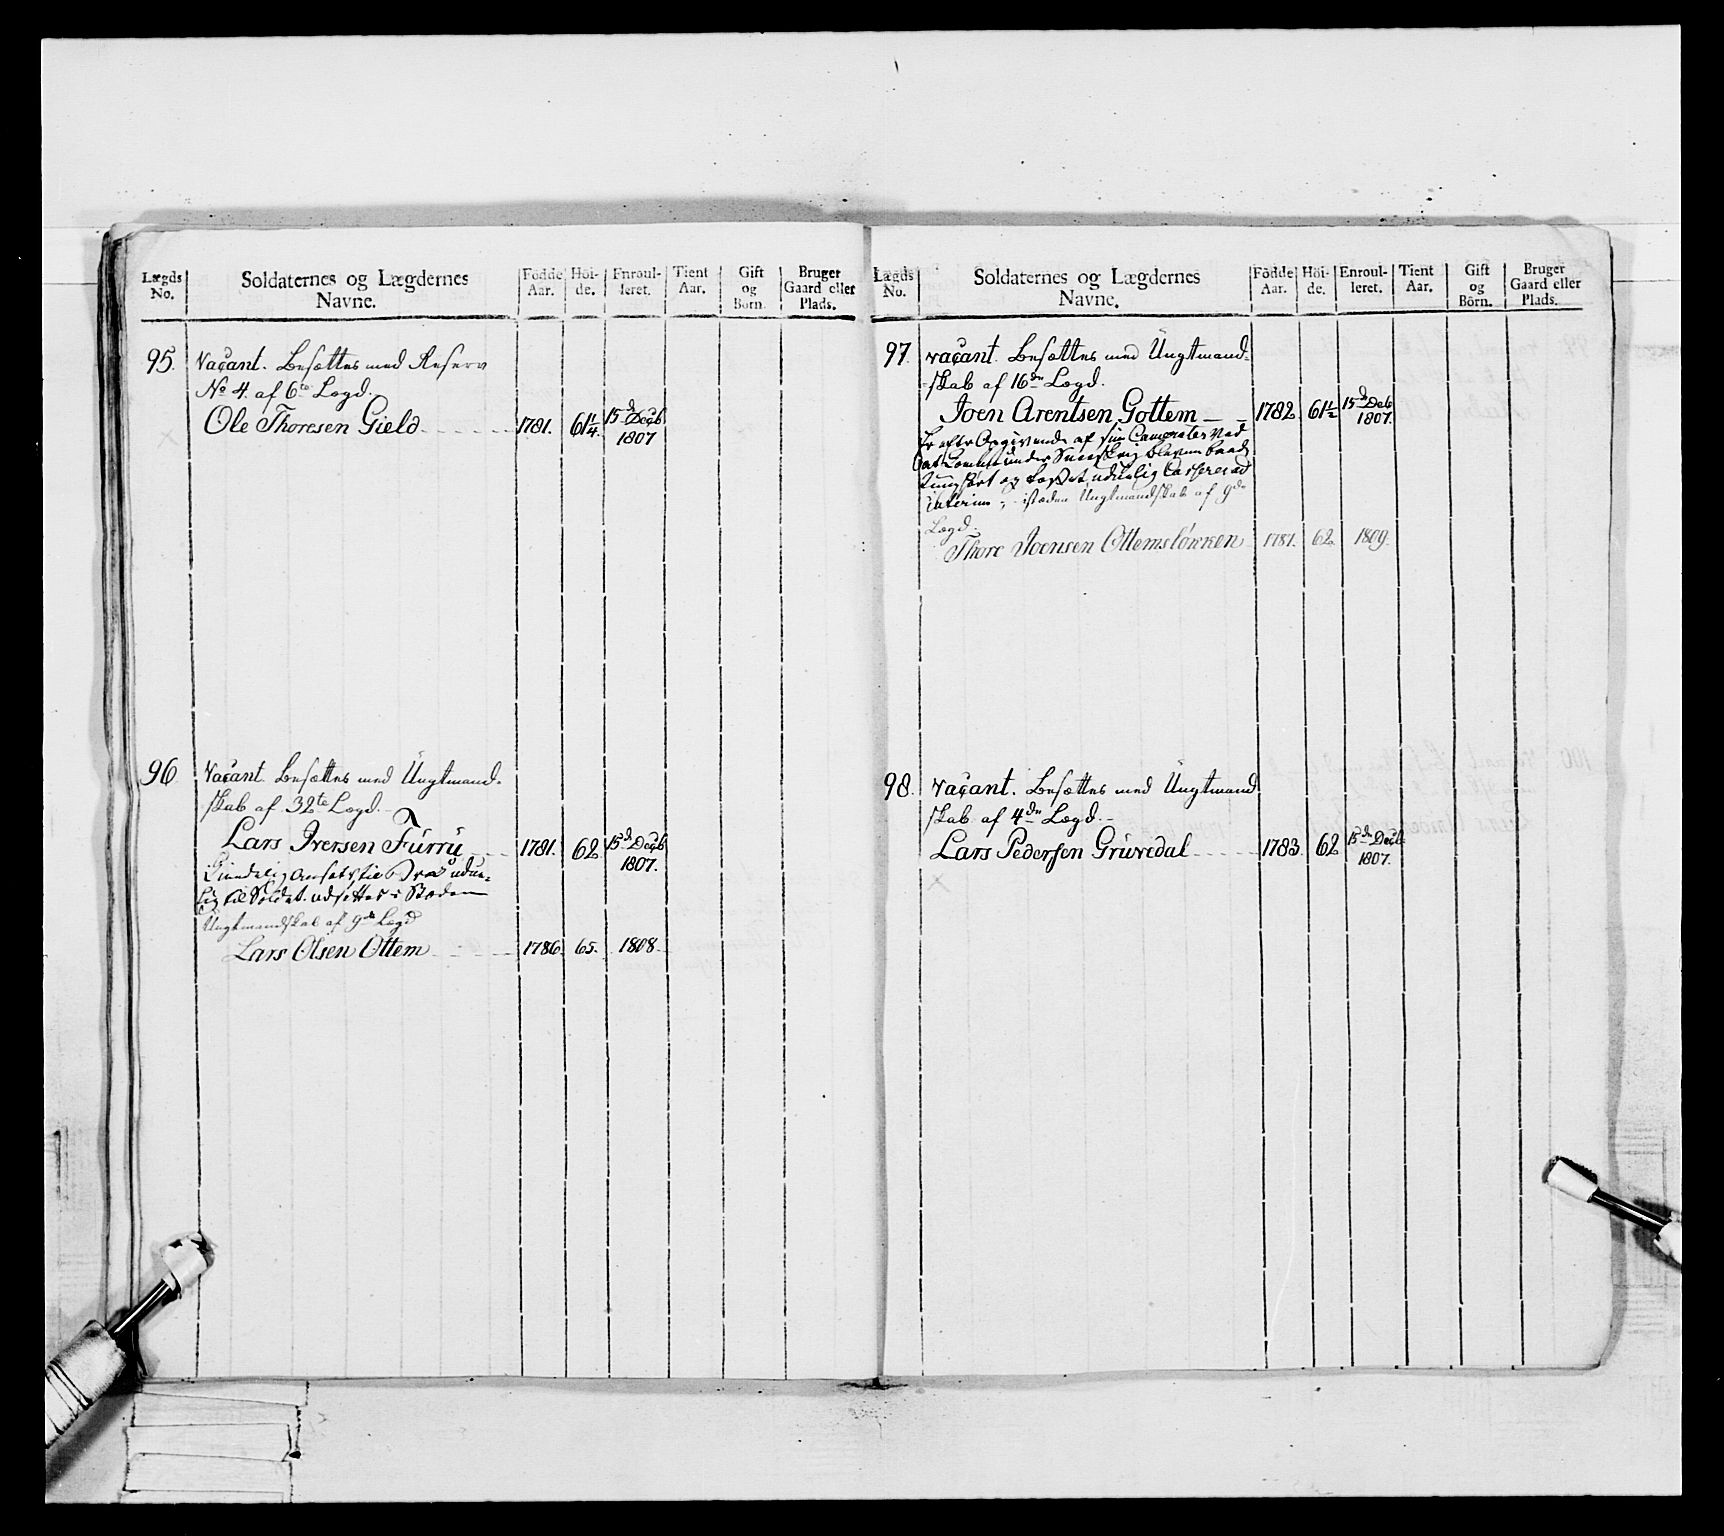 Lægds No. | Soldaternes og Lægdernes Navne. | Födde Aar. | Höi-de. | Enroul-leret. | Tient Aar. | Gift og Börn. | Bruger Gaard eller Plads.
95. Vacant. Besættes med Reserv
No 4. af 6te Lægd.
Ole Thoresen Gield 1781. 61 1/4. 15de Decb 1807
96 Vacant. Besættes med Ungtmand-
skab af 32te Lægd.
Lars Iversen Furru 1781. 62 15de Decb 1807.
udue-
lig til Soldat. udsættes i Stæden
Ungtmandskab af 9de Lægd
Lars Olsen Ottem 1786. 65. 1808.
Lægds No. | Soldaternes og Lægdernes Navne. | Födde Aar. | Höi-de. | Enroul-leret. | Tient Aar. | Gift og Börn. | Bruger Gaard eller Plads.
97. vacant. Besættes med Ungtmand-
skab af 16de Lægd.
Joen Arentsen Gottem 1782 61 1/2 15de Decb 1807.
Er efter Angivende af sin Camerater ved
uduelig Casseres ad
interim, istæden Ungtmandskab af 9de
Lægd.
Thore Joensen Ottemsløkken 1781. 62 1809.
98. vacant. Besættes med Ungtmand
skab af 4de Lægd.
Lars Pedersen Gruvedal 1783 62 15de Decb. 1807.